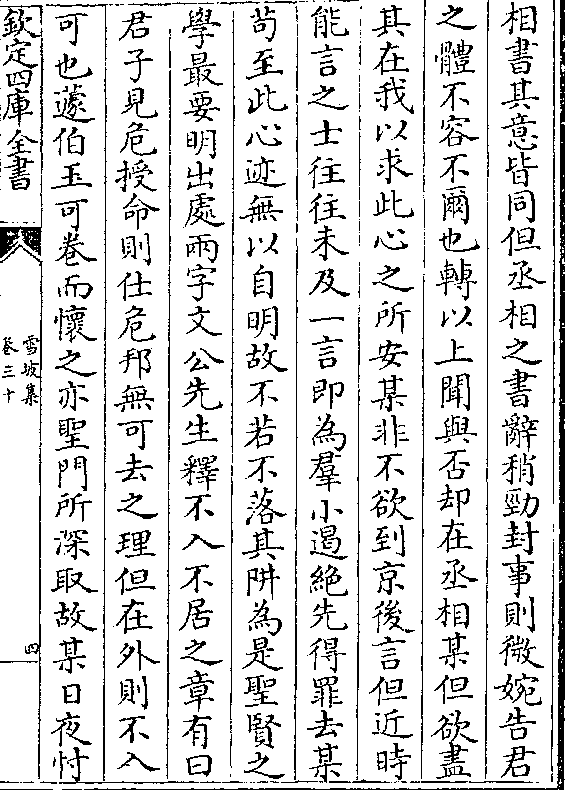 相書其意皆同但丞相之書辭稍勁封事則微婉告君
之體不容不爾也轉以上聞與否却在丞相某但欲盡
其在我以求此心之所安某非不欲到京後言但近時
能言之士往往未及一言即為羣小遏絶先得罪去某
茍至此心迹無以自明故不若不落其阱為是聖賢之
學最要明出處兩字文公先生釋不入不居之章有曰
君子見危授命則仕危邦無可去之理但在外則不入
可也蘧伯玉可卷而懷之亦聖門所深取故某日夜忖
欽定四庫全書
雪坡集
卷三十
四